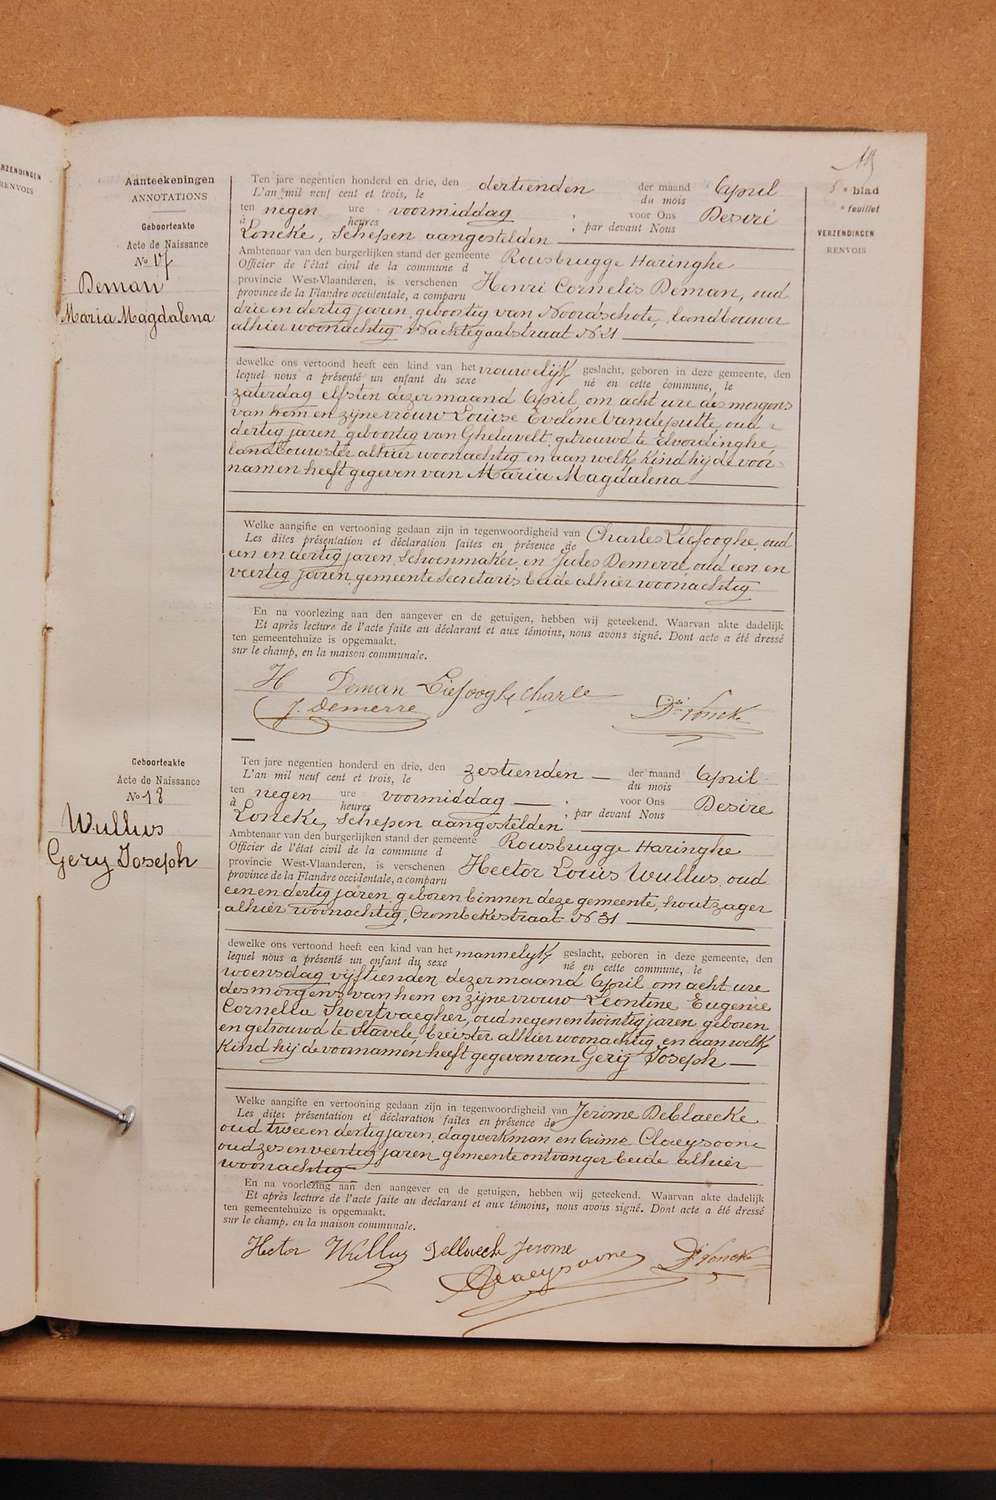 ERZENDINGEN
RENVOIS
5e blad
e feuillet
VERZENDINGEN
RENVOIS
Aanteekeningen
ANNOTATIONS
Geboorteakte
Acte de Naissance
No 17
Deman
Maria Magdalena
Ten jare negentien honderd en drie, den dertienden der maand April
L'an mil neuf cent et trois, le du mois
ten negen ure voormiddag ; voor Ons Desiré
à heures ; par devant Nous
Loncke, Schepen aangestelden
Ambtenaar van den burgerlijken stand der gemeente Rousbrugge Haringhe
Officier de l'état civil de la commune d
provincie West-Vlaanderen, is verschenen Henri Cornelis Deman, oud
province de la Flandre occidentale, a comparu
drie en dertig jaren, geboortig van Noordschote, landbouwer
alhier woonachtig Nachtegaalstraat No 21
dewelke ons vertoond heeft een kind van het vrouwelijk geslacht, geboren in deze gemeente, den
lequel nous a présenté un enfant du sexe né en cette commune, le
zaterdag elfsten dezer maand April om acht ure des morgens
van hem en zijne vrouw Louise Eveline Vandeputte, oud
dertig jaren, geboortig van Gheluvelt, getrouwd te Elverdinghe
landbouwster alhier woonachtig en aan welk kind hij de voor-
namen heeft gegeven van Maria Magdalena
Welke aangifte en vertooning gedaan zijn in tegenwoordigheid van Charles Liefooghe, oud
Les dites présentation et déclaration faites en présence de
een en dertig jaren, schoenmaker, en Jules Demerre oud een en
veertig jaren, gemeente Secretaris beide alhier woonachtig
En na voorlezing aan den aangever en de getuigen, hebben wij geteekend. Waarvan akte dadelijk
Et après lecture de l'acte faite au déclarant et aux témoins, nous avons signé. Dont acte a été dressé
ten gemeentehuize is opgemaakt.
sur le champ, en la maison communale.
H Deman Liefooghe Charle
J. Demerre Dré Lonck
Geboorteakte
Acte de Naissance
No 18
Wullus
Gery Joseph
Ten jare negentien honderd en drie, den zestienden der maand April
L'an mil neuf cent et trois, le du mois
ten negen ure voormiddag ; voor Ons Desire
à heures ; par devant Nous
Loncke, Schepen aangestelden
Ambtenaar van den burgerlijken stand der gemeente Rousbrugge Haringhe
Officier de l'état civil de la commune d
provincie West-Vlaanderen, is verschenen Hector Louis Wullus, oud
province de la Flandre occidentale, a comparu
een en dertig jaren, geboren binnen deze gemeente, houtzager
alhier woonachtig, Crombekestraat No 31
dewelke ons vertoond heeft een kind van het mannelyk geslacht, geboren in deze gemeente, den
lequel nous a présenté un enfant du sexe né en cette commune, le
woensdag vijftienden dezer maand April om acht ure
des morgens, van hem en zijne vrouw Leontine Eugenie
Cornelia Swertvaegher, oud negen en twintig jaren, geboren
en getrouwd te Stavele, breister alhier woonachtig, en aan welk
kind hij de voornamen heeft gegeven van Gerij Joseph
Welke aangifte en vertooning gedaan zijn in tegenwoordigheid van Jerome Deblaecke
Les dites présentation et déclaration faites en présence de
oud twee en dertig jaren, dagwerkman en Claeysoone
oud zes en veertig jaren gemeente ontvanger beide alhier
woonachtig
En na voorlezing aan den aangever en de getuigen, hebben wij geteekend. Waarvan akte dadelijk
Et après lecture de l'acte faite au déclarant et aux témoins, nous avons signé. Dont acte a été dressé
ten gemeentehuize is opgemaakt.
sur le champ, en la maison communale.
Hector Wullus Jerome
Claeysoone Dré Lonck